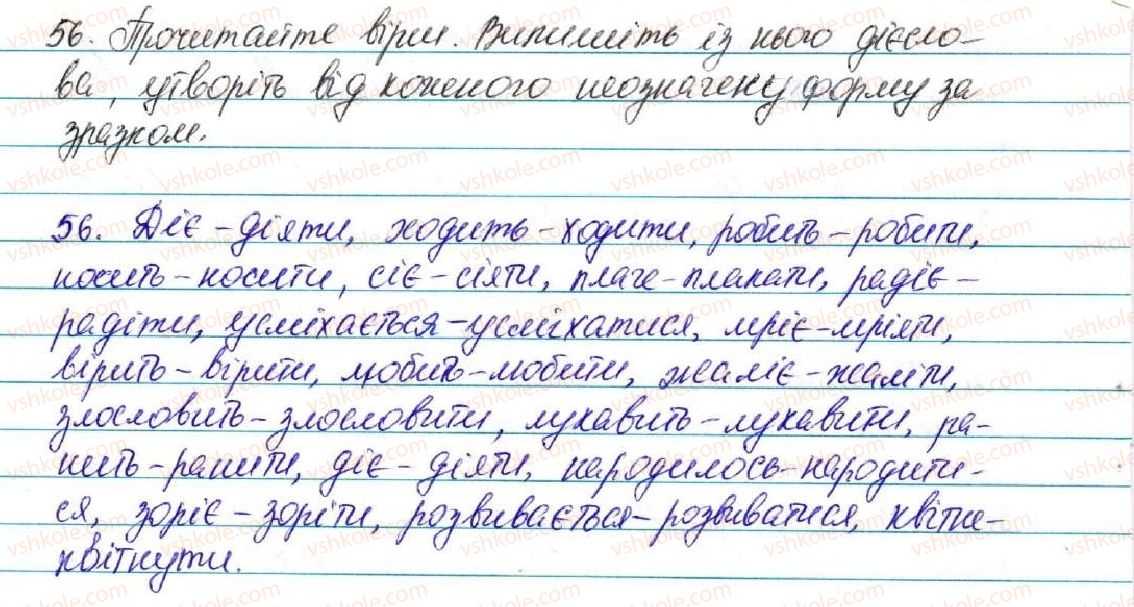 56. Прочитайте вірш. Випишіть із нього дієсло-
ва, утворіть від кожного неозначену форму за
зразком.
56. Діє - діяти, ходить - ходити, робить - робити,
носить - носити, сіє - сіяти, плаче - плакати, радіє -
радіти, усміхається - усміхатися, мріє - мріяти,
вірить - вірити, любить - любити, жаліє - жаліти,
злословить - злословити, лукавить - лукавити, ра-
нить - ранити, діє - діяти, народилось - народити-
ся, зоріє - зоріти, розвивається - розвиватися, квітне -
квітнути.